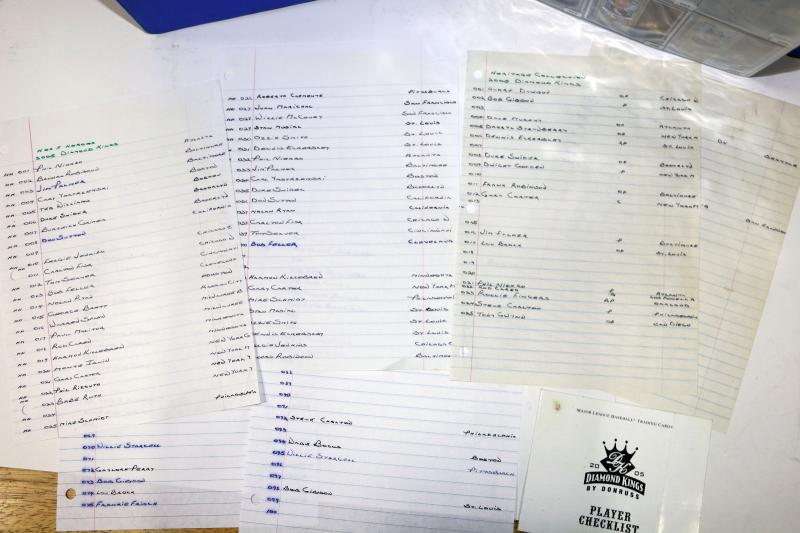 HALL HEROES
2005 DIAMOND KINGS
HH 001 PHIL NIEKRO ATLANTA
HH 002 BROOKS ROBINSON BALTIMORE
HH 003 JIM PALMER BALTIMORE
HH 004 CARL YASTRZEMSKI BOSTON
HH 005 TED WILLIAMS BOSTON
HH 006 DUKE SNIDER BROOKLYN
HH 007
HH 008 DON SUTTON CALIFORNIA
HH 009
HH 010 FERGIE JENKINS CHICAGO
011 CARLTON FISK CHICAGO
012 TOM SEAVER CINCINNATI
HH 013 BOB FELLER CLEVELAND
HH 014 NOLAN RYAN HOUSTON
HH 015 GEORGE BRETT KANSAS CITY
HH 016 WARREN SPAHN MILWAUKEE B
HH 017 PAUL MOLITOR MILWAUKEE
HH 018 ROD CAREW MINNESOTA
HH 019 HARMON KILLEBREW MINNESOTA
HH 020 MONTE IRVIN NEW YORK G
HH 021 GARY CARTER NEW YORK M
HH 022 PHIL RIZZUTO NEW YORK Y
HH 023 BABE RUTH NEW YORK Y
HH 024
HH 025 MIKE SCHMIDT PHILADELPHIA
HH 026 ROBERTO CLEMENTE PITTSBURGH
HH 027 JUAN MARICHAL SAN FRANCISCO
WILLIE MCCOVEY SAN FRANCISCO
STAN MUSIAL ST. LOUIS
OZZIE SMITH ST. LOUIS
DENNIS ECKERSLEY ST. LOUIS
PHIL NIEKRO ATLANTA
JIM PALMER BALTIMORE
CARL YASTRZEMSKI BOSTON
DUKE SNIDER BROOKLYN
DON SUTTON CALIFORNIA
NOLAN RYAN CALIFORNIA
CARLTON FISK CHICAGO W
TOM SEAVER CINCINNATI
BOB FELLER CLEVELAND
HARMON KILLEBREW MINNESOTA
GARY CARTER NEW YORK M
MIKE SCHMIDT PHILADELPHIA
STAN MUSIAL ST. LOUIS
ZZIE SMITH ST. LOUIS
ENNIS ECKERSLEY ST. LOUIS
GIE JENKINS CHICAGO
ROBINSON BALTIMOR
HERITAGE COLLECTION
2005 DIAMOND KINGS
001 ANDRE DAWSON OF CHICAGO N
002 BOB GIBSON P ST. LOUIS
003
004 DALE MURPHY OF ATLANTA
005 DARRYL STRAWBERRY OF NEW YORK M
006 DENNIS ECKERSLEY RP ST. LOUIS
007
008 DUKE SNIDER OF BROOKLYN
009 DWIGHT GOODEN P NEW YORK M
010
011 FRANK ROBINSON OF BALTIMORE
012 GARY CARTER C NEW YORK M
013
015
016 JIM PALMER P BALTIMORE
017 LOU BROCK OF ST. LOUIS
018
019
020
021 PHIL NIEKRO P ATLANTA
022 ROD CAREW LOS ANGELES
023 ROLLIE FINGERS RP OAKLAND
024 STEVE CARLTON P PHILADELPHIA
025 TONY GWYNN OF SAN DIEGO
069
070 WILLIE STARGELL
071
072 GAYLORD PERRY
073 BOB GIBSON
074 LOU BROCK
075 FRANKIE FRISCH
088
089
090
091
092 STEVE CARLTON PHILADELPHIA
093
094 WADE BOGGS BOSTON
095 WILLIE STARGELL PITTSBURGH
096
097
098 BOB GIBSON ST. LOUIS
099
100
MAJOR LEAGUE BASEBALL® TRADING CARDS
DK
2005
DIAMOND KINGS
BY DONRUSS
PLAYER
CHECKLIST